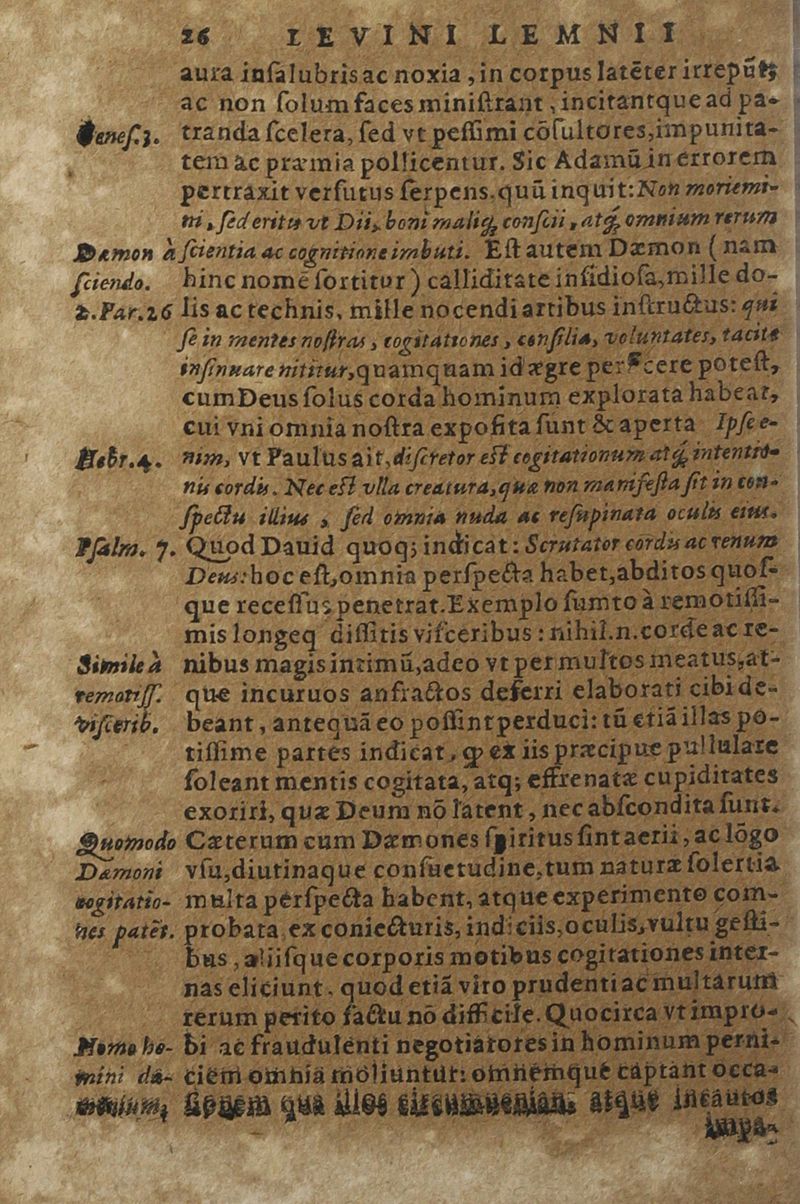 26 LEVINI LEMNII
aura insalubris ac noxia, in corpus latēter irrepūt;
ac non solum faces ministrant, incitantque ad pa-
Genes. 3. tranda scelera, sed vt pessimi cōsultores, impunita-
tem ac præmia pollicentur. Sic Adamū in errorem
pertraxit versutus serpens. quū inquit: Non moriemi-
ni, sed eritis vt Dii, boni maliq; conscii, atq; omnium rerum
Dæmon à scientia ac cognitione imbuti. Est autem Dæmon (nam
sciendo. hinc nomē sortitur) calliditate insidiosa, mille do-
2. Par. 26 lis ac technis, mille nocendi artibus instructus: qui
se in mentes nostras, cogitationes, consilia, voluntates, tacite
insinuare nititur, quamquam id ægre perficere potest,
cum Deus solus corda hominum explorata habeat,
cui vni omnia nostra exposita sunt & aperta. Ipse e-
Hebr. 4. nim, vt Paulus ait, discretor est cogitationum atq; intentio-
nis cordis. Nec est vlla creatura, quæ non manifesta sit in con-
spectu illius, sed omnia nuda ac resupinata oculis eius.
Psalm. 7. Quod Dauid quoq; indicat: Scrutator cordis ac renum
Deus: hoc est, omnia perspecta habet, abditos quos-
que recessus penetrat. Exemplo sumto à remotissi-
mis longeq; dissitis visceribus: nihil .n. corde ac re-
Simile à nibus magis intimū, adeo vt per multos meatus, at-
remotiss. que incuruos anfractos deferri elaborati cibi de-
viscerib. beant, antequā eo possint perduci: tū etiā illas po-
tissime partes indicat, ꝙ ex iis præcipue pullulare
soleant mentis cogitata, atq; effrenatæ cupiditates
exoriri, quæ Deum nō latent, nec abscondita sunt.
Quomodo Cæterum cum Dæmones spiritus sint aerii, ac lōgo
Dæmoni vsu, diutinaque consuetudine, tum naturæ solertia
cogitatio- multa perspecta habent, atque experimento com-
nes patēt. probata, ex coniecturis, indiciis, oculis, vultu gesti-
bus, aliisque corporis motibus cogitationes inter-
nas eliciunt. quod etiā viro prudenti ac multarum
rerum perito factu nō difficile. Quocirca vt impro-
Homo ho- bi ac fraudulenti negotiatores in hominum perni-
mini dæ- ciem omnia moliuntur: omnemque captant occa-
monium, sionem qua illos circumueniant, atque incautos
impa-